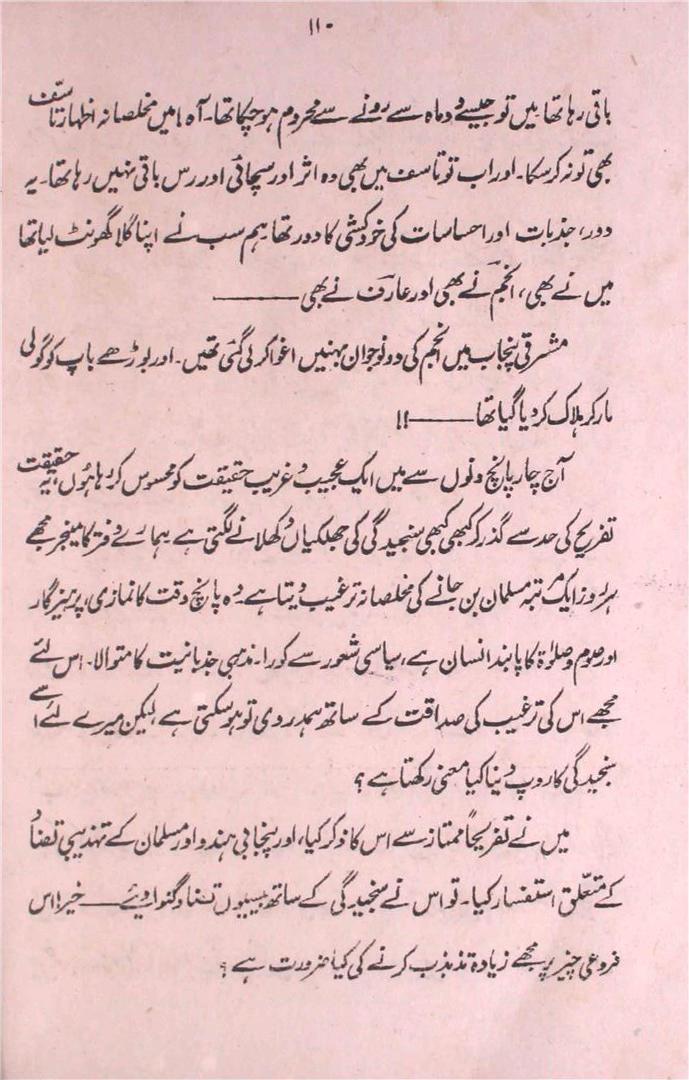 ۱۱۰
باقی رہا تھا میں تو جیسے دو ماہ سے رونے سے محروم ہو چکا تھا۔ آہ! میں مخلصانہ اظہار تاسّف
بھی تو نہ کر سکا۔ اور اب تو تاسف میں بھی وہ اثر اور سچائی اور رس باقی نہیں رہا تھا۔ یہ
دور، جذبات اور احساسات کی خودکشی کا دور تھا۔ ہم سب نے اپنا گلا گھونٹ لیا تھا
میں نے بھی، انجم نے بھی اور عارف نے بھی ———
مشرقی پنجاب میں انجم کی دو نوجوان بہنیں اغوا کر لی گئی تھیں۔ اور بوڑھے باپ کو گولی
مار کر ہلاک کر دیا گیا تھا ——— !!
آج چار پانچ دنوں سے میں ایک عجیب و غریب حقیقت کو محسوس کر رہا ہوں، یہ حقیقت
تفریح کی حد سے گذر کر کبھی کبھی سنجیدگی کی جھلکیاں دکھلانے لگتی ہے ہمارے دفتر کا مینجر مجھے
ہر روز ایک مرتبہ مسلمان بن جانے کی مخلصانہ ترغیب دیتا ہے۔ وہ پانچ وقت کا نمازی، پرہیزگار
اور صوم و صلوٰۃ کا پابند انسان ہے، سیاسی شعور سے کورا۔ مذہبی جذباتیت کا متوالا۔ اس لئے
مجھے اس کی ترغیب کی صداقت کے ساتھ ہمدردی تو ہو سکتی ہے لیکن میرے لئے اسے
سنجیدگی کا روپ دینا کیا معنی رکھتا ہے؟
میں نے تفریحاً ممتاز سے اس کا ذکر کیا، اور پنجابی ہندو اور مسلمان کے تہذیبی تضاد
کے متعلق استفسار کیا۔ تو اس نے سنجیدگی کے ساتھ بیسیوں تضاد گنوا دیئے —— خیر! اس
فروعی چیز پر مجھے زیادہ تذبذب کرنے کی کیا ضرورت ہے؟